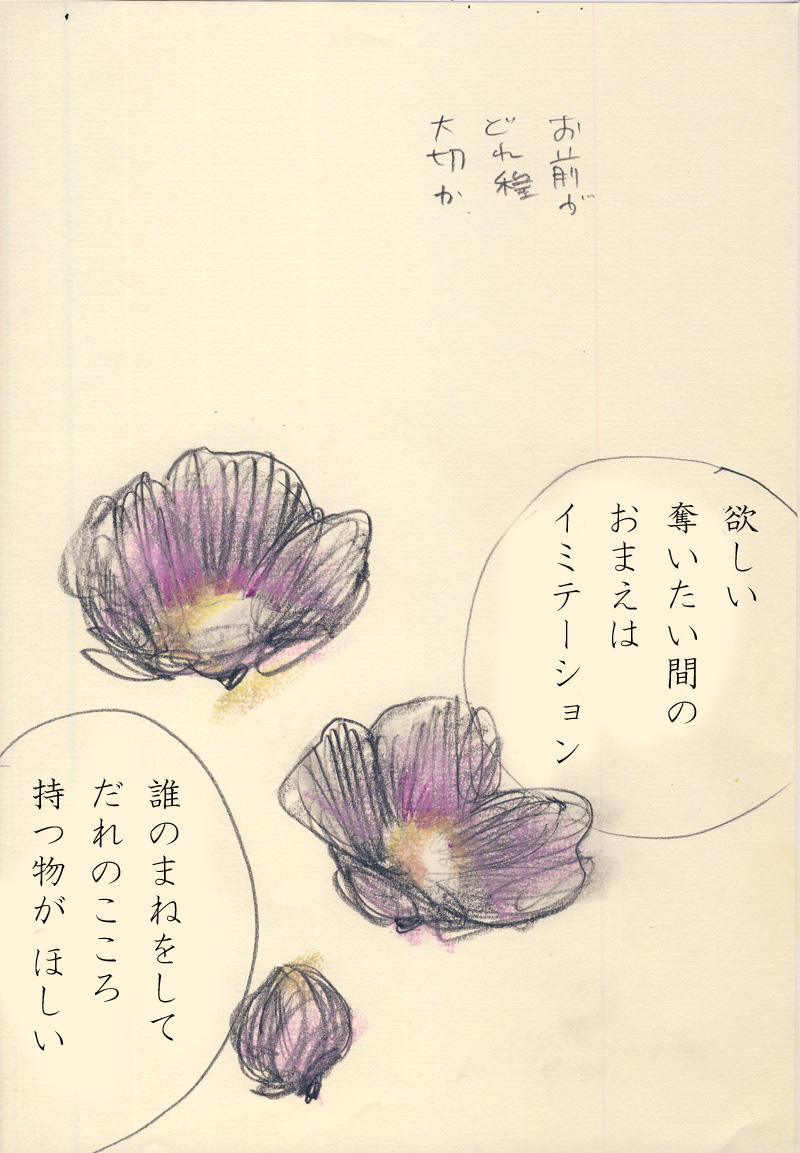 お前が
どれ程
大切か
欲しい
奪いたい間の
おまえは
イミテーション
誰のまねをして
だれのこころ
持つ物が ほしい